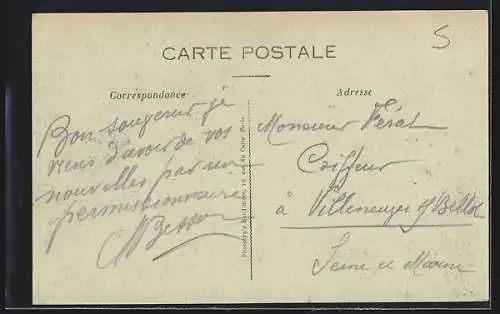 5
CARTE POSTALE
Correspondance
Adresse
Bon souvenir je
viens d'avoir de vos
nouvelles par un
permissionnaire
Besson
Monsieur Férat
Coiffeur
à Villeneuve s/ Bellot
Seine et Marne